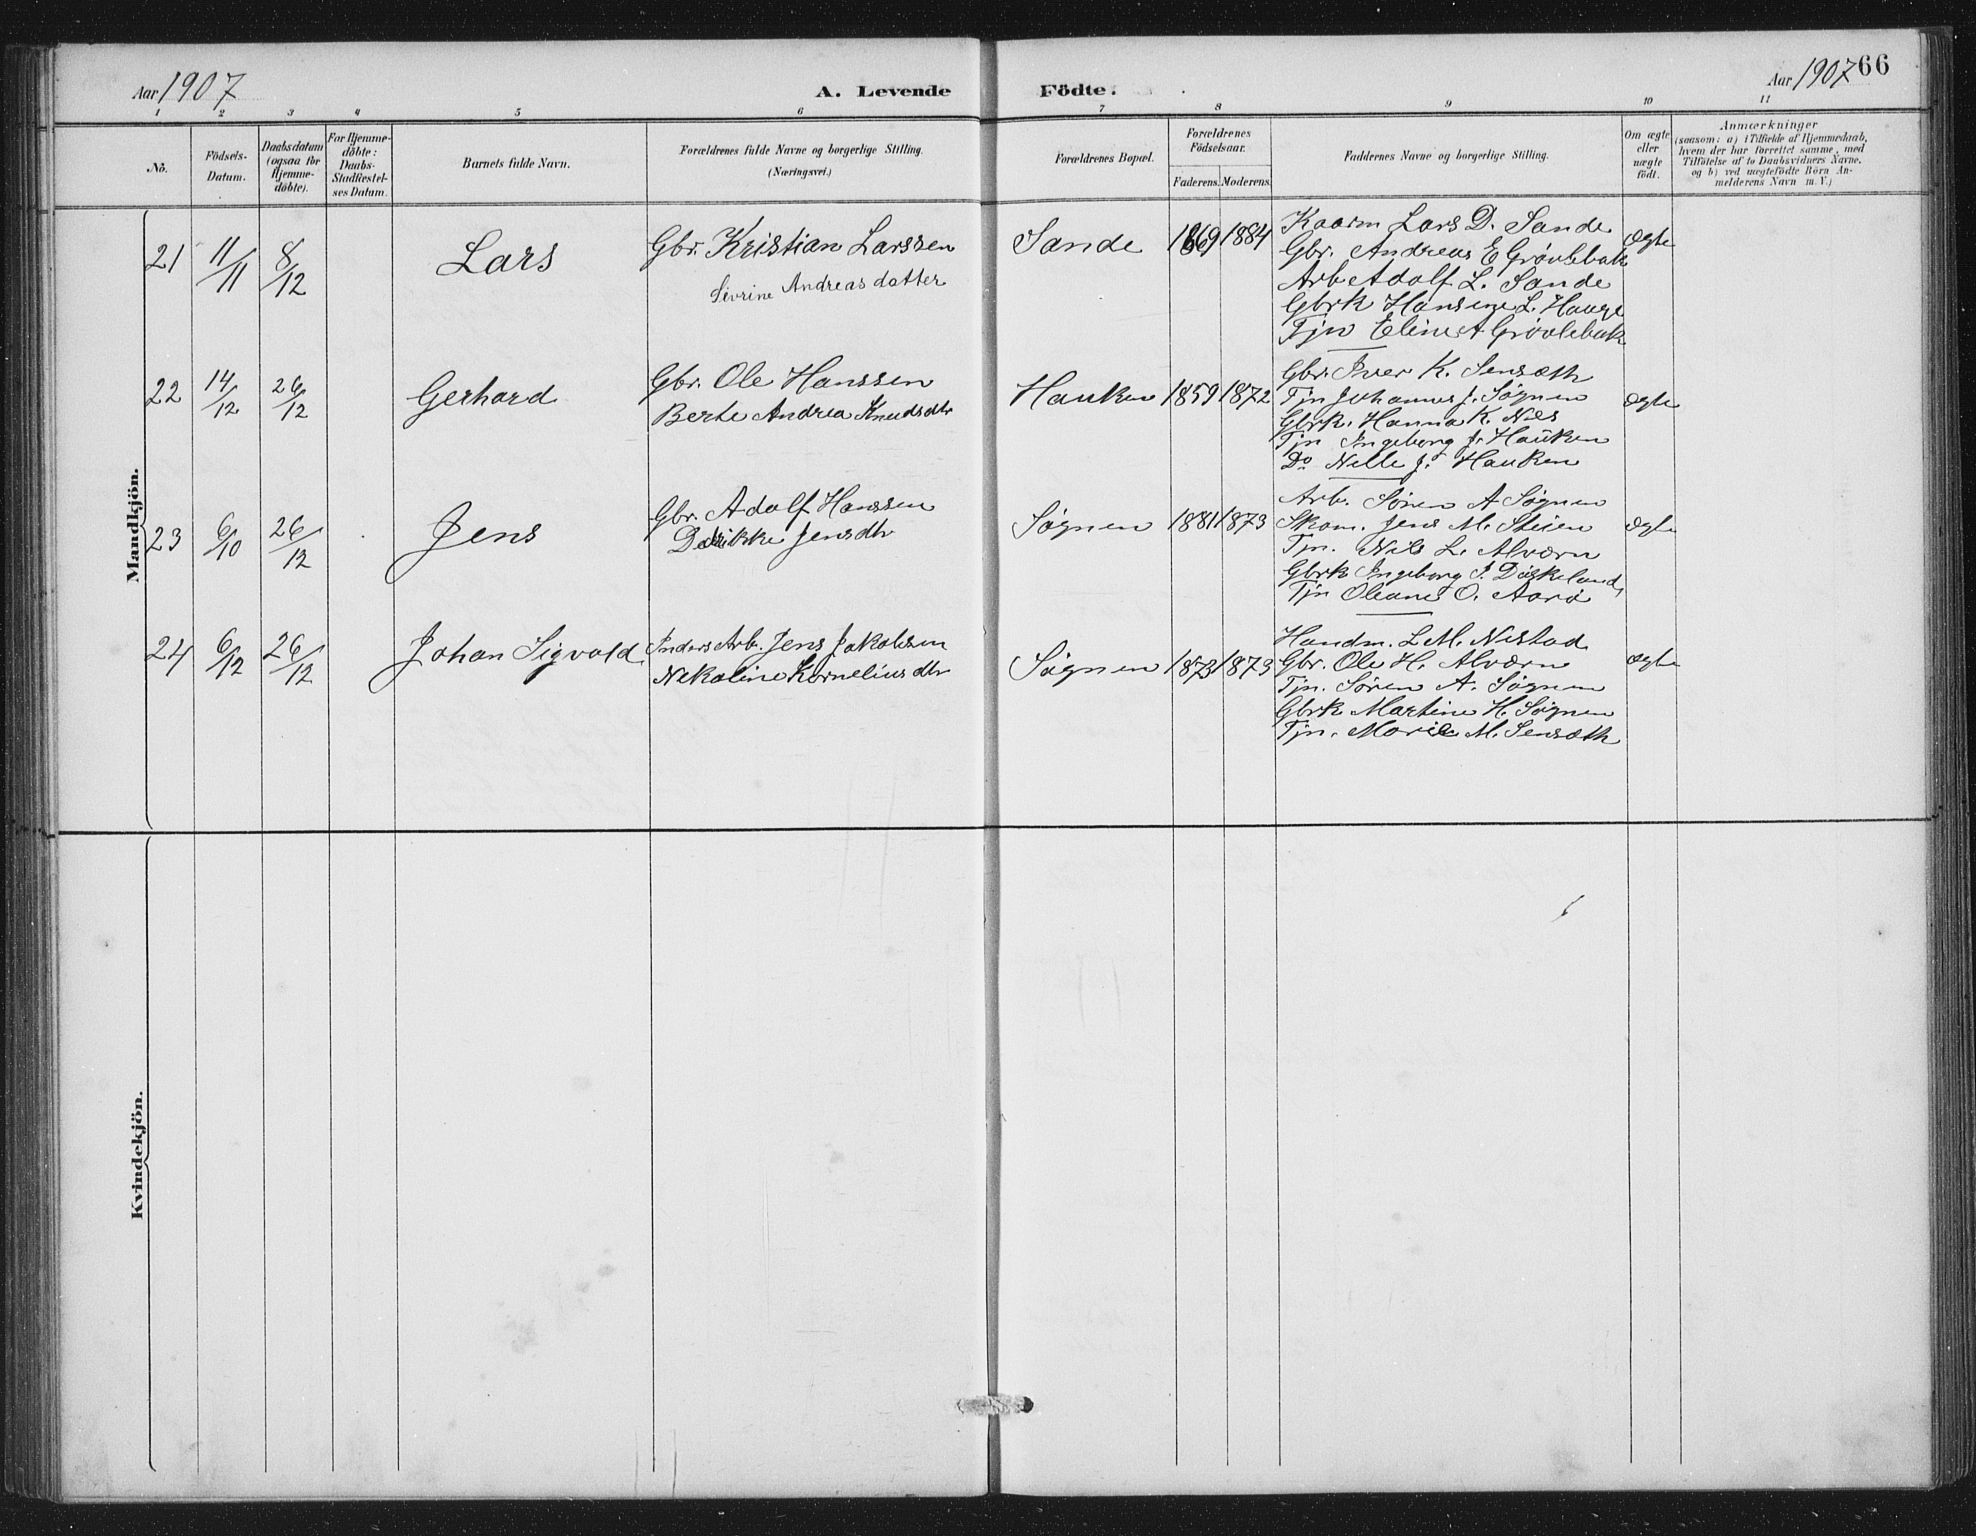 Aar 1907
A. Levende Födte.
Aar 1907 66
1 2 3 4 5 6 7 8 9 10 11
No.
Födsels-
Datum.
Daabsdatum
(ogsaa for
Hjemme-
döbte).
For Hjemme-
döbte:
Daabs-
Stadfæstel-
ses Datum.
Barnets fulde Navn.
Forældrenes fulde Navne og borgerlige Stilling.
(Næringsvei.)
Forældrenes Bopæl.
Forældrenes
Födselsaar.
Faderens. Moderens.
Faddernes Navne og borgerlige Stilling.
Om ægte
eller
uægte
födt.
Anmærkninger
(saasom: a) i Tilfælde af Hjemmedaab,
hvem der har forrettet samme, med
Tilföielse af to Daabsvidners Navne.
og b) ved uægtefödte Börn An-
melderens Navn m. V.)
Mandkjön.
21 11/11 8/12 Lars
Gbr. Kristian Larssen
Sevrine Andreasdatter
Sande 1869 1884
Kaarm Lars D. Sande
Gbr. Andreas E Grövlebak
Arb Adolf L. Sande
Gbrk Hansine L. Hauge
Tjn Eline A Grövlebak
ægte
22 14/12 26/12 Gerhard
Gbr. Ole Hanssen
Berte Andrea Knudsdtr
Hauken 1859 1872
Gbr. Iver K. Sensæth
Tjn Johannes J. Søgnen
Gbrk. Hanna K. Nes
Tjn Ingeborg J. Hauken
Do Nille J. Hauken
ægte
23 6/10 26/12 Jens
Gbr. Adolf Hanssen
Dorikke Jensdtr
Søgnen 1881 1873
Arb. Søren A Søgnen
Skom. Jens M. Steien
Tjn. Nils L. Alværn
Gbrk Ingeborg J. Døskeland
Tjn Oleane O. Aarø
ægte
24 6/12 26/12 Johan Sigvald
Inders Arb. Jens Jakobsen
Nikoline Korneliusdtr
Søgnen 1873 1873
Handm. L. M. Nistad
Gbr. Ole H. Alværn
Tjn. Søren A. Søgnen
Gbrk Martine H. Søgnen
Tjn. Marie M. Sensæth
ægte
Kvindekjön.